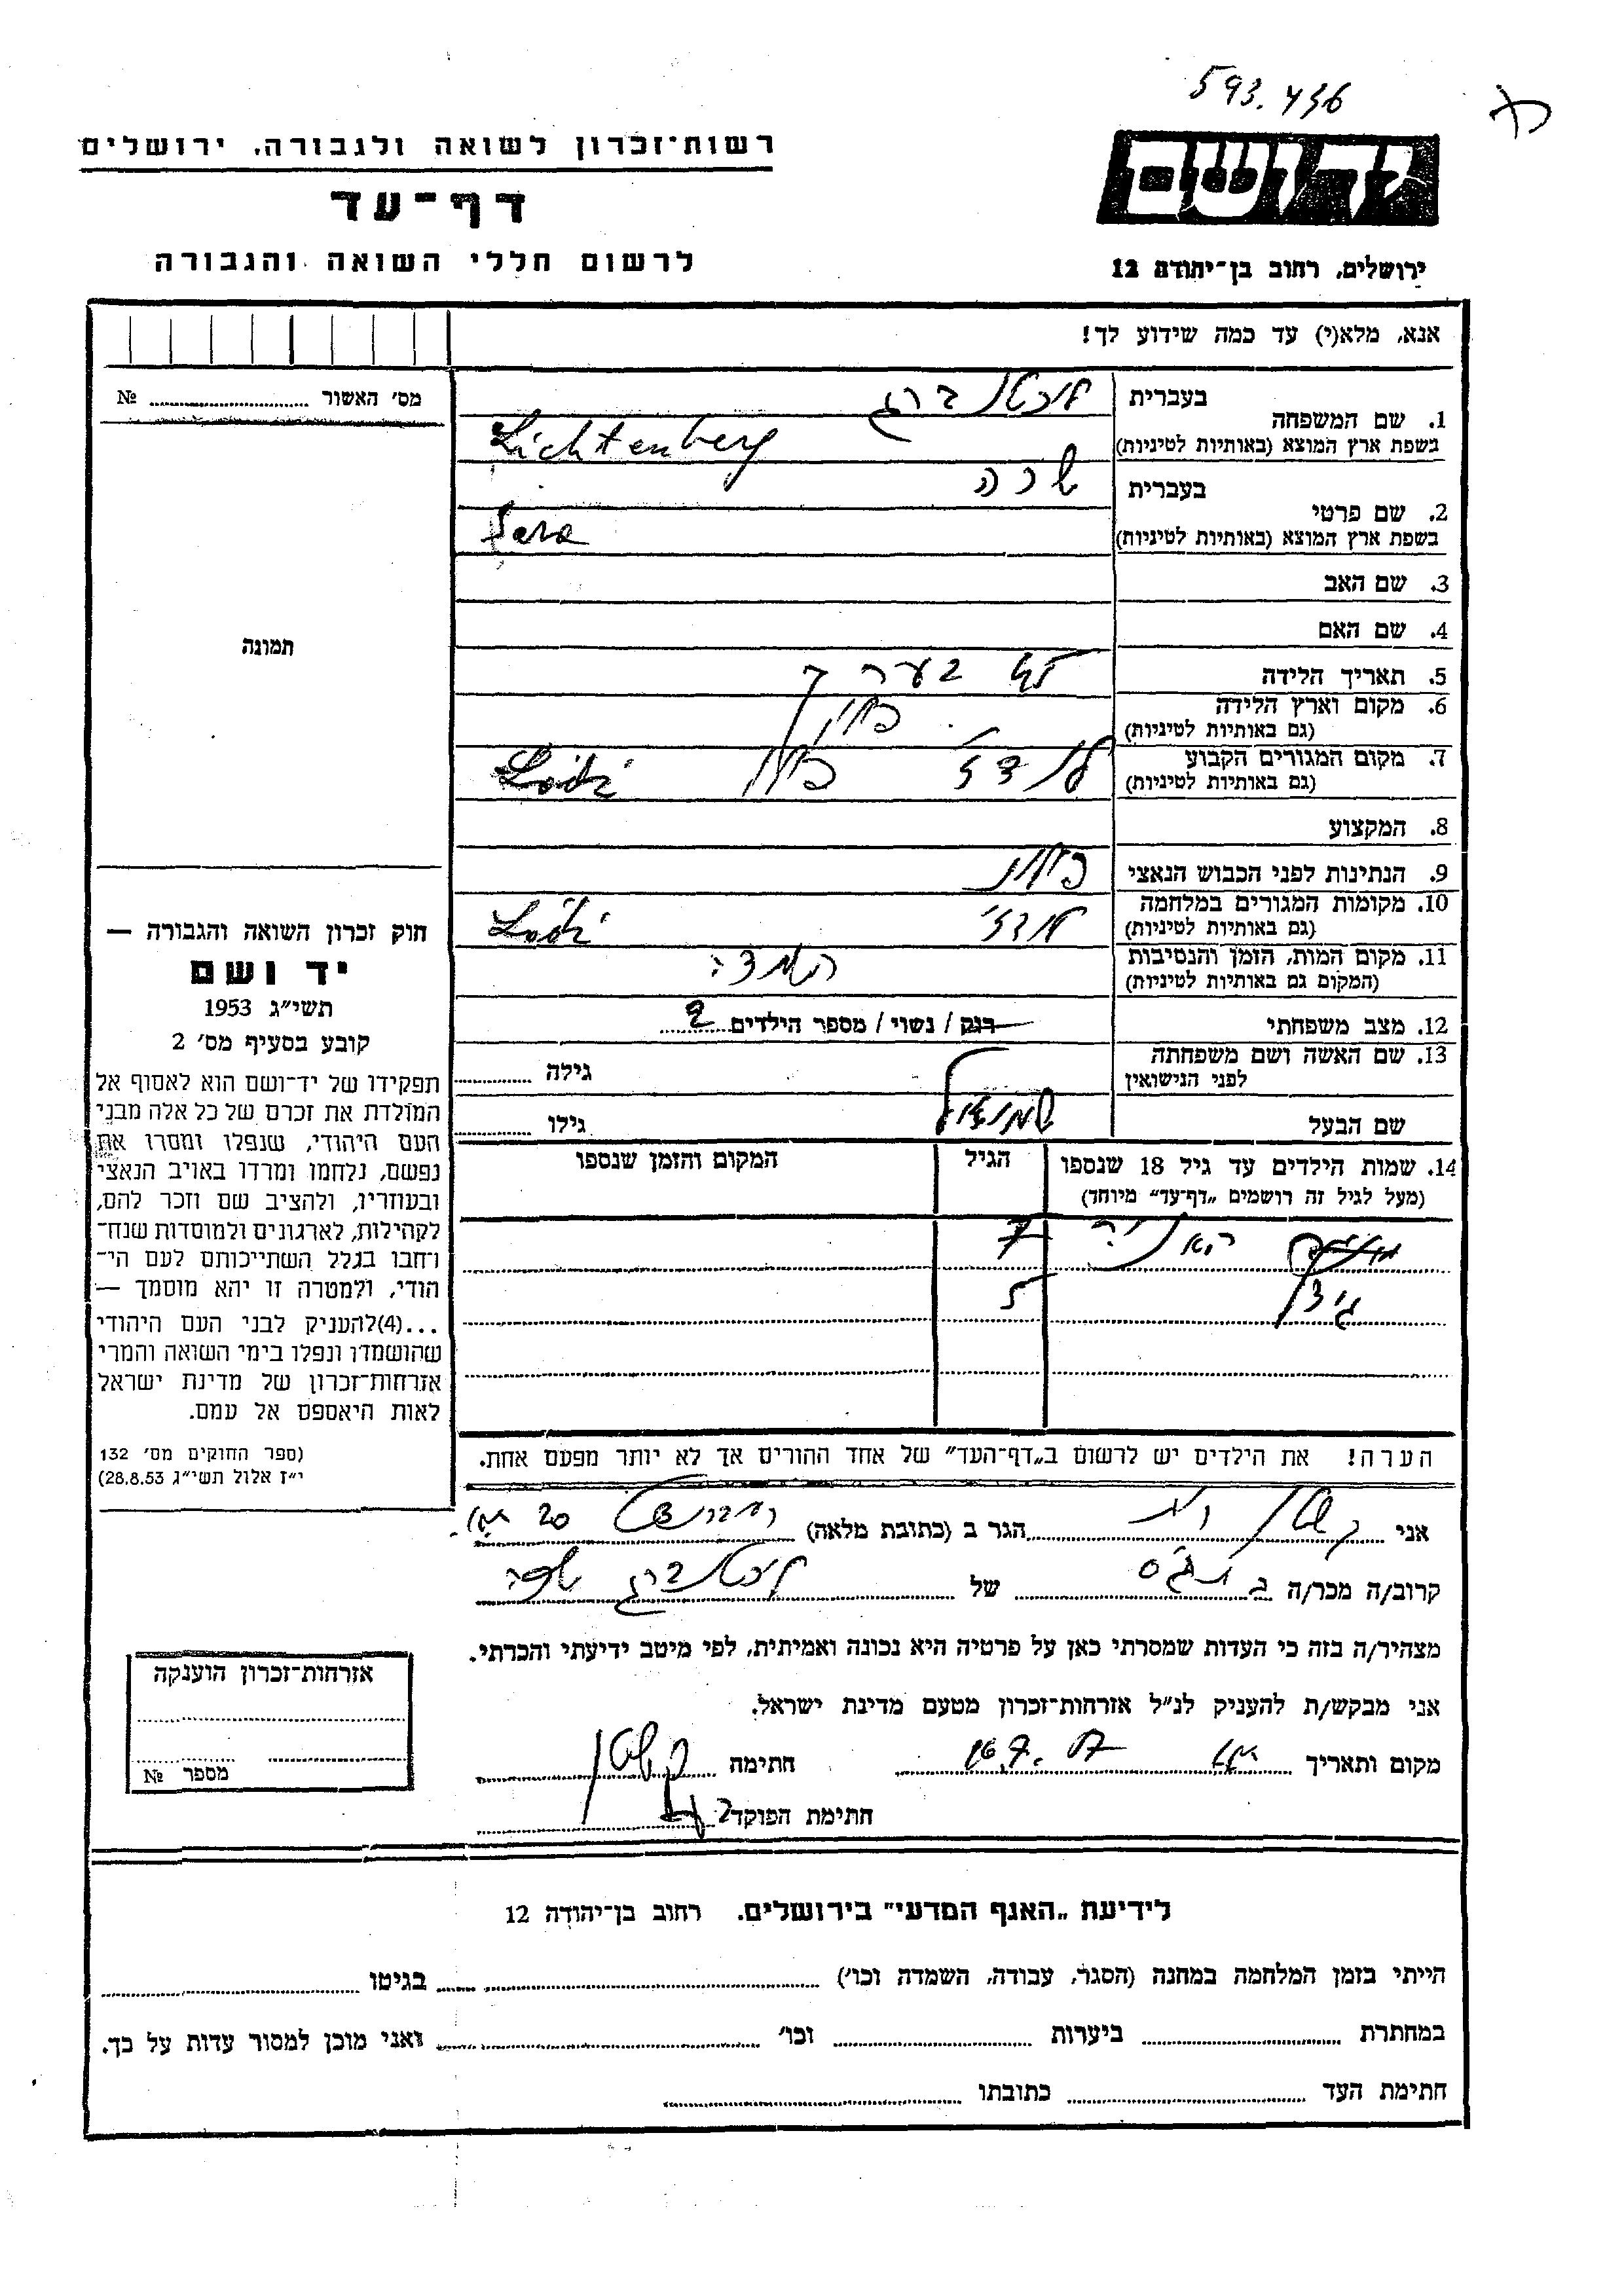 593.436
רשות־זכרון לשואה ולגבורה, ירושלים
דף־עד
לרשום חללי השואה והגבורה
יד ושם
ירושלים, רחוב בן־יהודה 12
אנא, מלא(י) עד כמה שידוע לך!
מס׳ האשור № 
1. שם המשפחה
בעברית
ליכטנברג
בשפת ארץ המוצא (באותיות לטיניות)
Lichtenberg
2. שם פרטי
בעברית
שרה
בשפת ארץ המוצא (באותיות לטיניות)
Sara
3. שם האב
4. שם האם
תמונה
5. תאריך הלידה
בערך
6. מקום וארץ הלידה
(גם באותיות לטיניות)
פולין
7. מקום המגורים הקבוע
(גם באותיות לטיניות)
לודז׳ פולין Łódź
8. המקצוע
9. הנתינות לפני הכבוש הנאצי
10. מקומות המגורים במלחמה
(גם באותיות לטיניות)
לודז׳ Łódź
11. מקום המות, הזמן והנסיבות
(המקום גם באותיות לטיניות)
השמדה
12. מצב משפחתי
רוק / נשוי / מספר הילדים 2
13. שם האשה ושם משפחתה
לפני הנישואין
גילה
שם הבעל
גילו
14. שמות הילדים עד גיל 18 שנספו
(מעל לגיל זה רושמים „דף־עד״ מיוחד)
הגיל
המקום והזמן שנספו
7
5
הערה! את הילדים יש לרשום ב„דף־העד״ של אחד ההורים אך לא יותר מפעם אחת.
חוק זכרון השואה והגבורה —
יד ושם
תשי״ג 1953
קובע בסעיף מס׳ 2
תפקידו של יד־ושם הוא לאסוף אל
המולדת את זכרם של כל אלה מבני
העם היהודי, שנפלו ומסרו את
נפשם, נלחמו ומרדו באויב הנאצי
ובעוזריו, ולהציב שם וזכר להם,
לקהילות, לארגונים ולמוסדות שנח־
רבו בגלל השתייכותם לעם הי־
הודי, ולמטרה זו יהא מוסמך —
...(4)להעניק לבני העם היהודי
שהושמדו ונפלו בימי השואה והמרי
אזרחות־זכרון של מדינת ישראל
לאות היאספם אל עמם.
(ספר החוקים מס׳ 132
י״ז אלול תשי״ג 28.8.53)
אני הגר ב (כתובת מלאה) 20
קרוב/ה מכר/ה של ליכטנברג שרה
מצהיר/ה בזה כי העדות שמסרתי כאן על פרטיה היא נכונה ואמיתית, לפי מיטב ידיעתי והכרתי.
אני מבקש/ת להעניק לנ״ל אזרחות־זכרון מטעם מדינת ישראל.
מקום ותאריך חתימה
חתימת הפוקד
אזרחות־זכרון הוענקה
מספר №
לידיעת „האגף המדעי״ בירושלים. רחוב בן־יהודה 12
הייתי בזמן המלחמה במחנה (הסגר, עבודה, השמדה וכו׳) בגיטו
במחתרת ביערות וכו׳ ואני מוכן למסור עדות על כך.
חתימת העד כתובתו